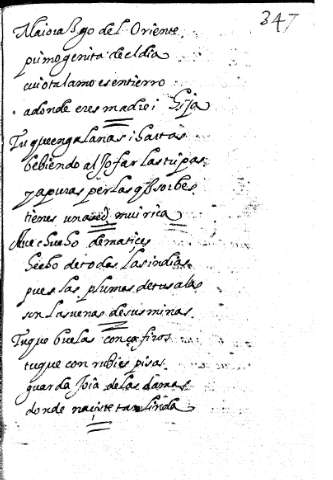 347
Maiorasgo del Oriente
primogenita del dia
cuio talamo es entierro
adonde eres madre i hija
Tu que engalanas i hartas
bebiendo aljofar las tripas
y apuras perlas q sorbes
tienes una sed mui rica
Aue chucho de matiçes
hecho de todas las indias
pues las plumas de tus alas
son las uenas de sus minas
Tu que buelas con çafiros
tu que con rubies pisas
guarda joia de las damas
donde naçiste tan linda